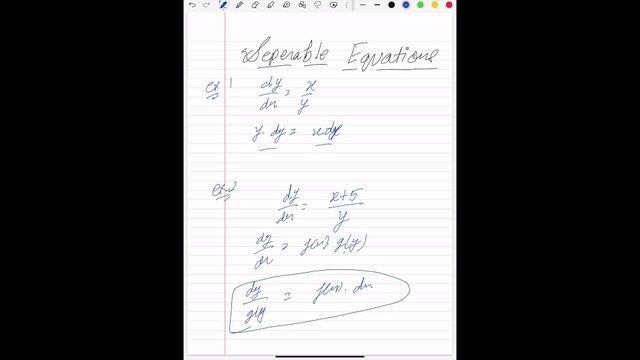 Seperable Equations
ex 1 dy/dx = x/y
y. dy = x dx
ex 2 dy/dx = x+5/y
dy/dx = f(x) g(y)
dy/g(y) = f(x). dx